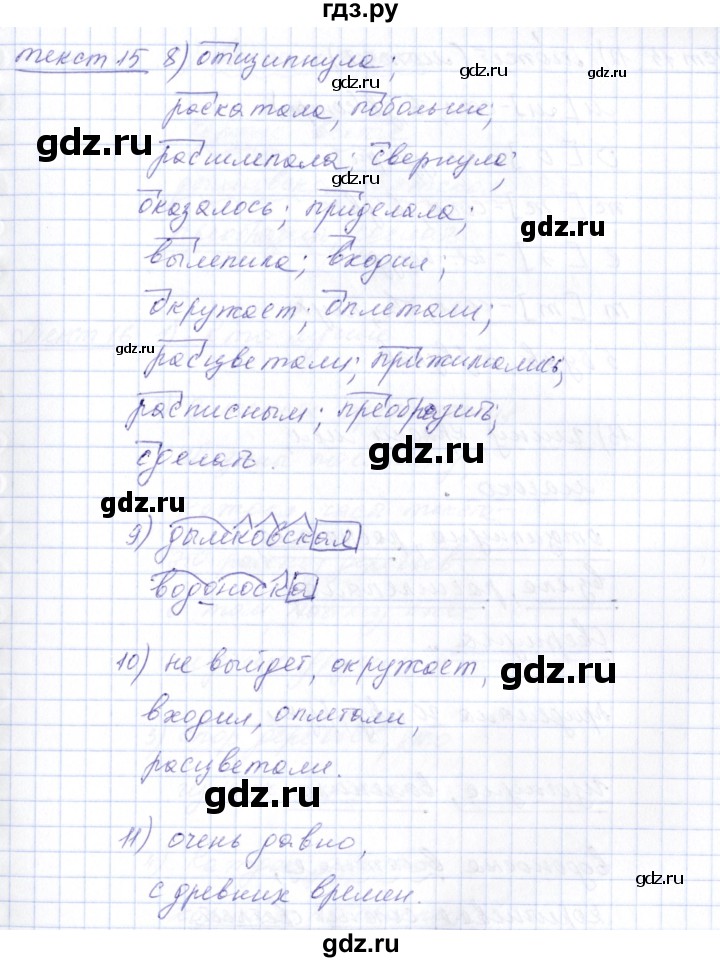 гдз.ру
текст 15 8) отщипнула;
gdz.ru
раскатала, побольше;
gdz.ru
gdz.ru
расшлепала; свернула;
gdz.ru
оказалось; приделала;
gdz.ru
вылепила; входил;
окружает; оплетали;
gdz.ru
расцветали; прижимались;
расписным; преобразить;
gdz.ru
сделать.
gdz.ru
9) дымковская
водоноска
10) не выйдет, окружает,
gdz.ru
входил, оплетали,
расцветали.
gdz.ru
11) очень давно,
gdz.ru
с древних времен.
gdz.ru